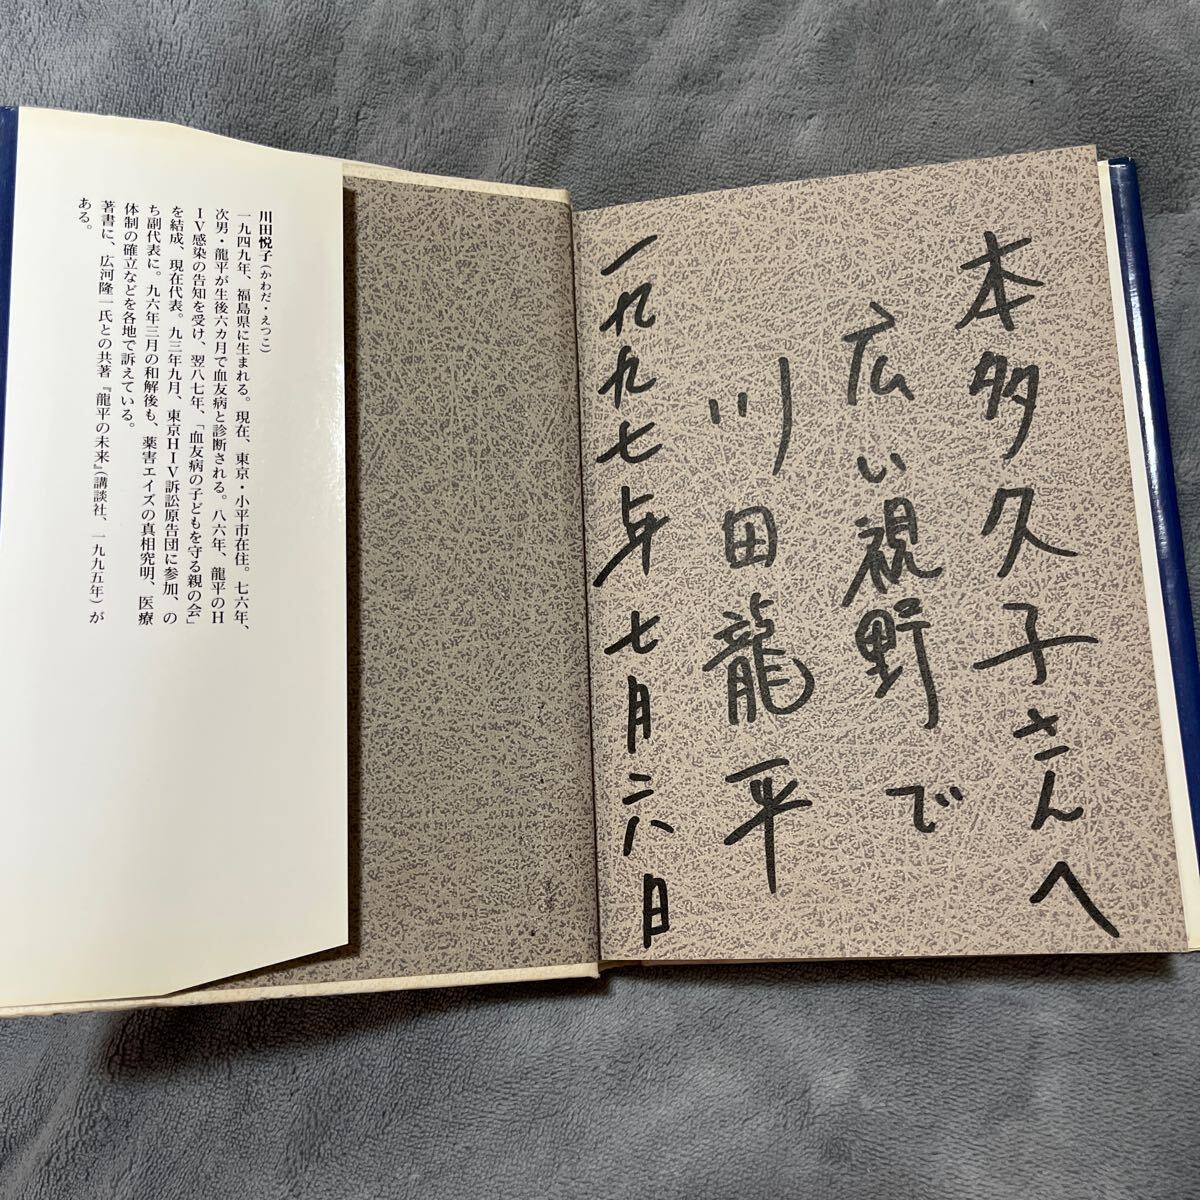 本多久子さんへ
広い視野で
川田龍平
一九九七年七月二八日
川田悦子(かわだ・えつこ)
一九四九年、福島県に生まれる。現在、東京・小平市在住。七六年、
次男・龍平が生後六カ月で血友病と診断される。八六年、龍平のH
IV感染の告知を受け、翌八七年、「血友病の子どもを守る親の会」
を結成、現在代表。九三年九月、東京HIV訴訟原告団に参加、の
ち副代表に。九六年三月の和解後も、薬害エイズの真相究明、医療
体制の確立などを各地で訴えている。
著書に、広河隆一氏との共著『龍平の未来』(講談社、一九九五年)が
ある。